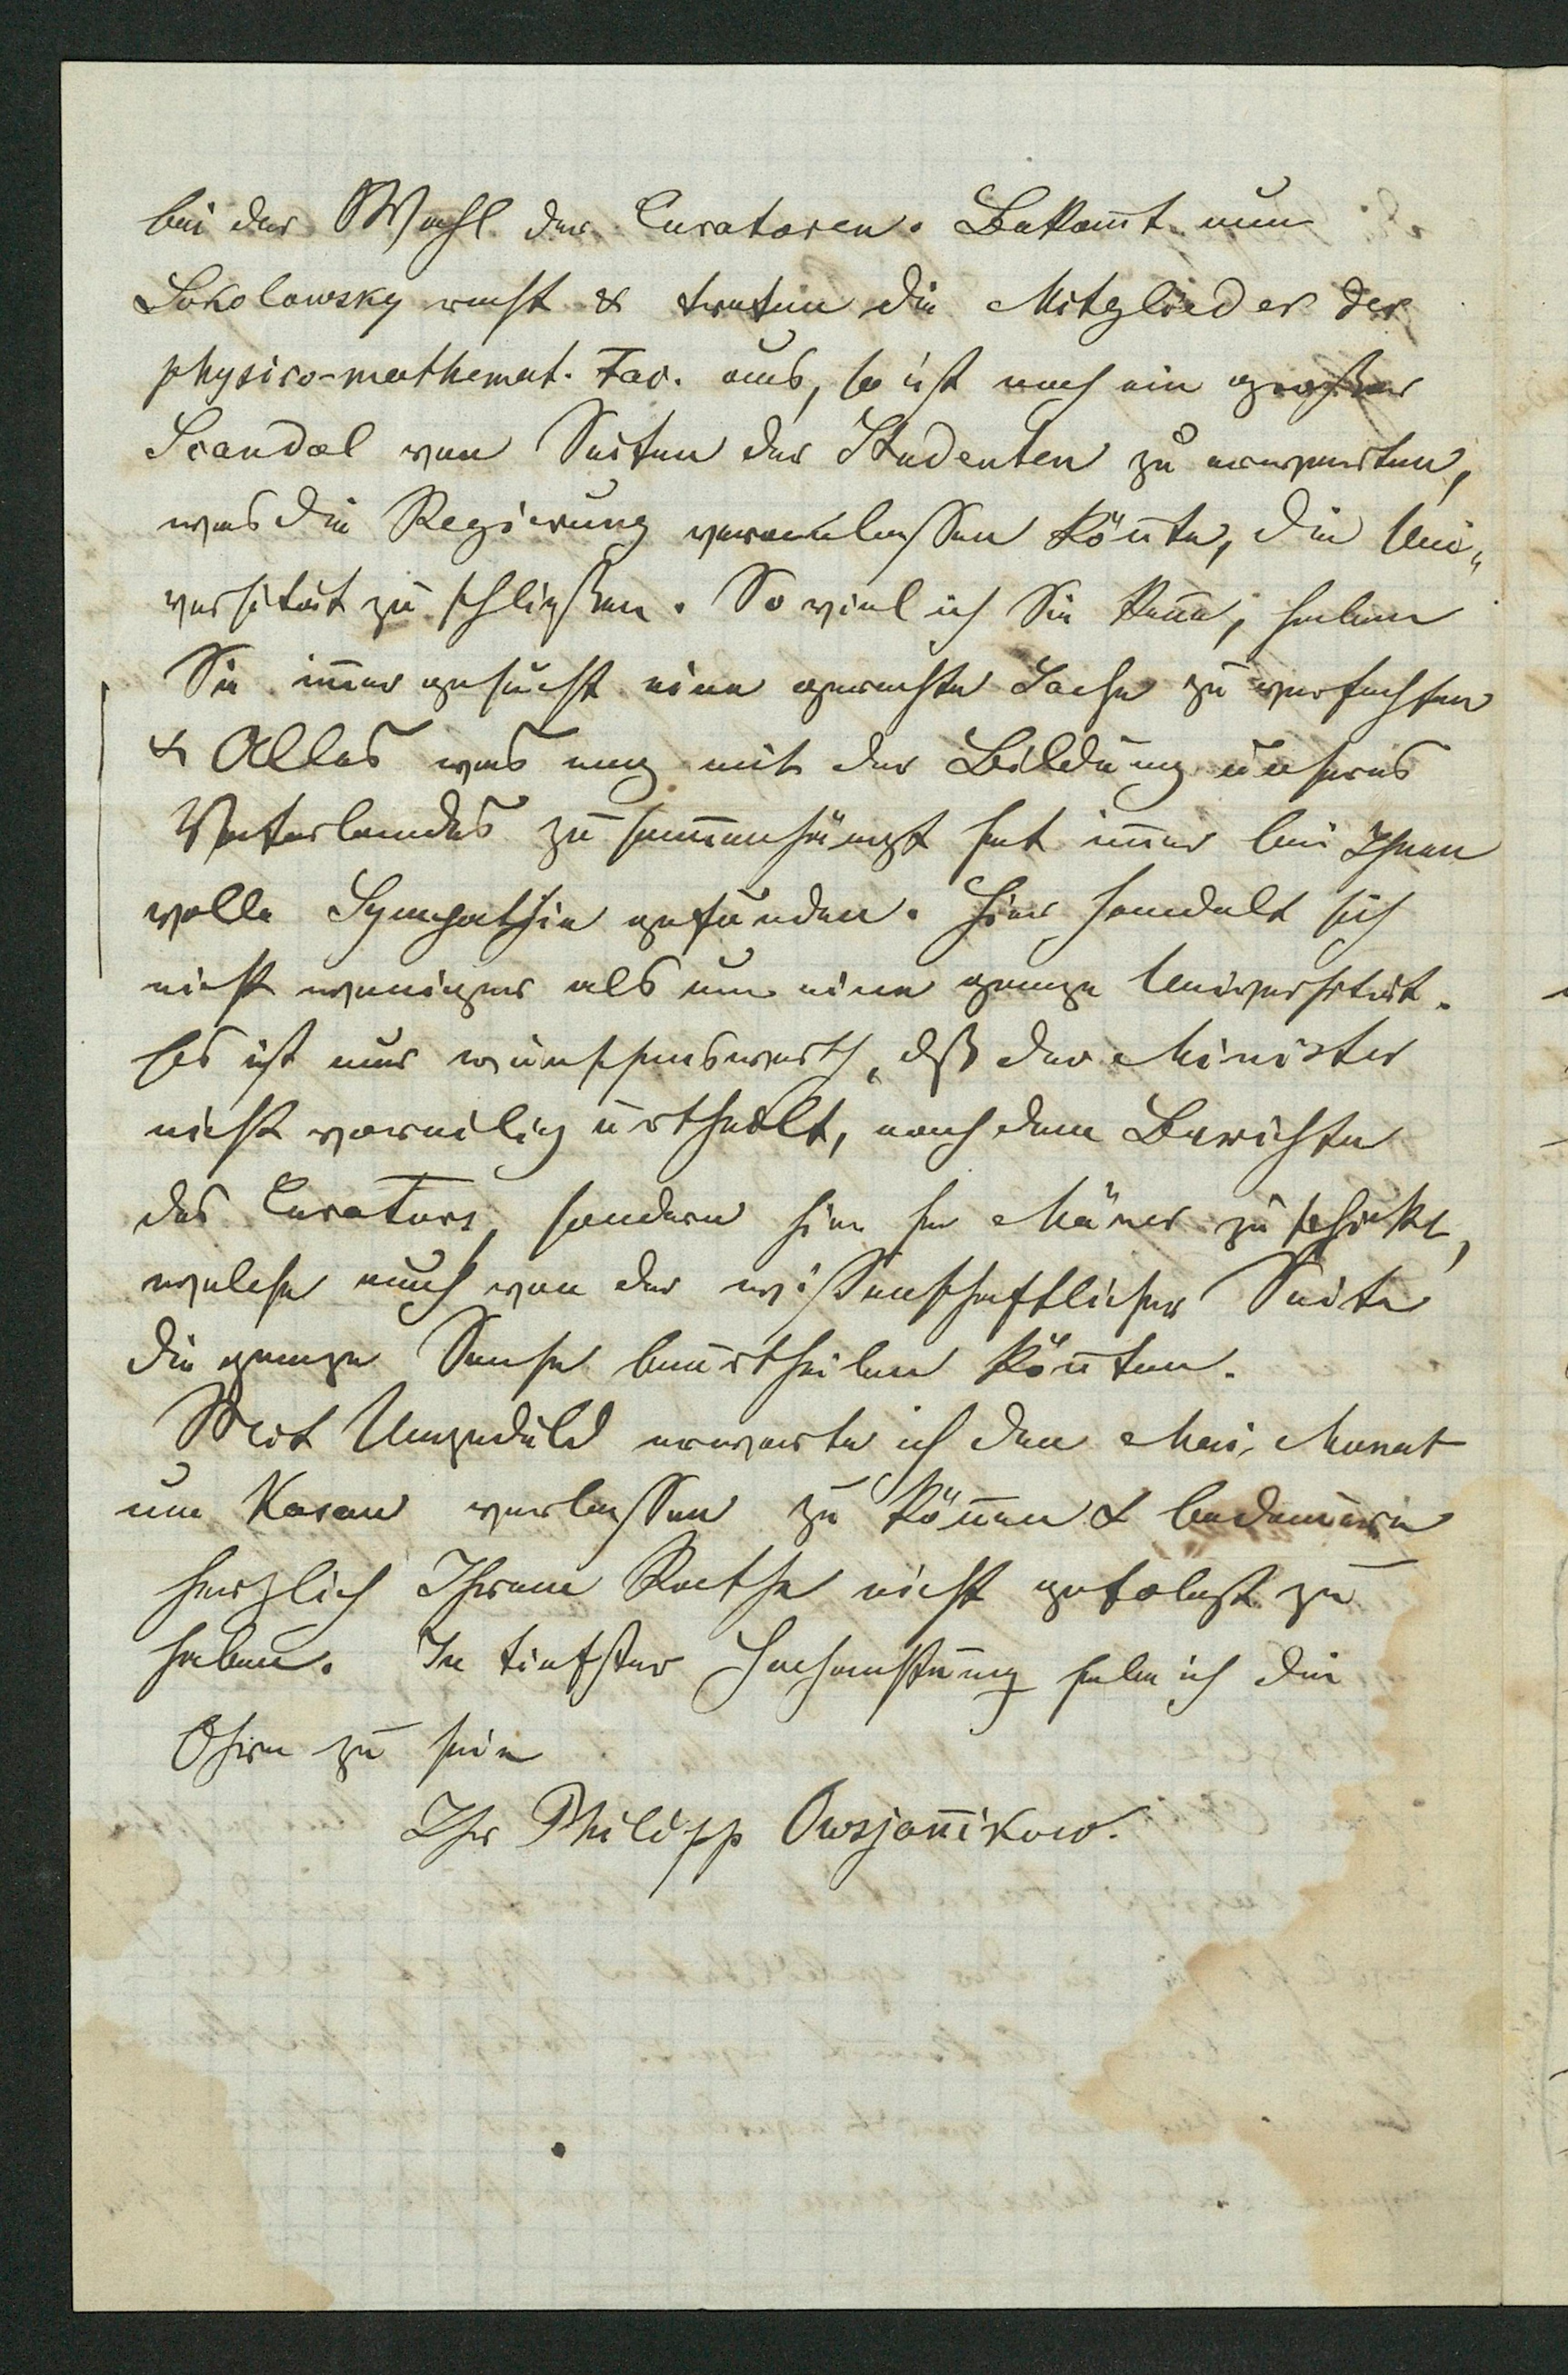 bei der Wahl der Curatoren. Bekom̄t nun
Sokolowsky recht & treten die Mitglieder der
physico-mathemat. Fac. aus, so ist noch ein großer
Scandal von Seiten der Studenten zu erwarten,
was die Regierung veranlassen kön̄te, die Uni„
versität zu schließen. So viel ich Sie ken̄e, haben
Sie im̄er gesucht eine gerechte Sache zu verfechten
& Alles was eng mit der Bildung unseres
Vaterlandes zusam̄enhängt hat im̄er bei Ihnen
volle Sympathie gefunden. Hier handelt sich
nicht weniger als um eine ganze Universität.
Es ist nur wünschenswerth, daß der Minister
nicht voreilig urtheilt, nach dem Berichte
des Curators, sondern hier her Män̄er zu schickt,
welche auch von der wißenschaftlicher Seite
die ganze Sache beurtheilen kön̄ten.
Mit Ungeduld erwarte ich den Mai, Monat
um Kasan verlassen zu kön̄en & bedauere
herzlich Ihrem Rathe nicht gefolgt zu
haben. In tiefster Hochachtung habe ich die
Ehre zu sein
Ihr Philipp Owsjan̄ikow.